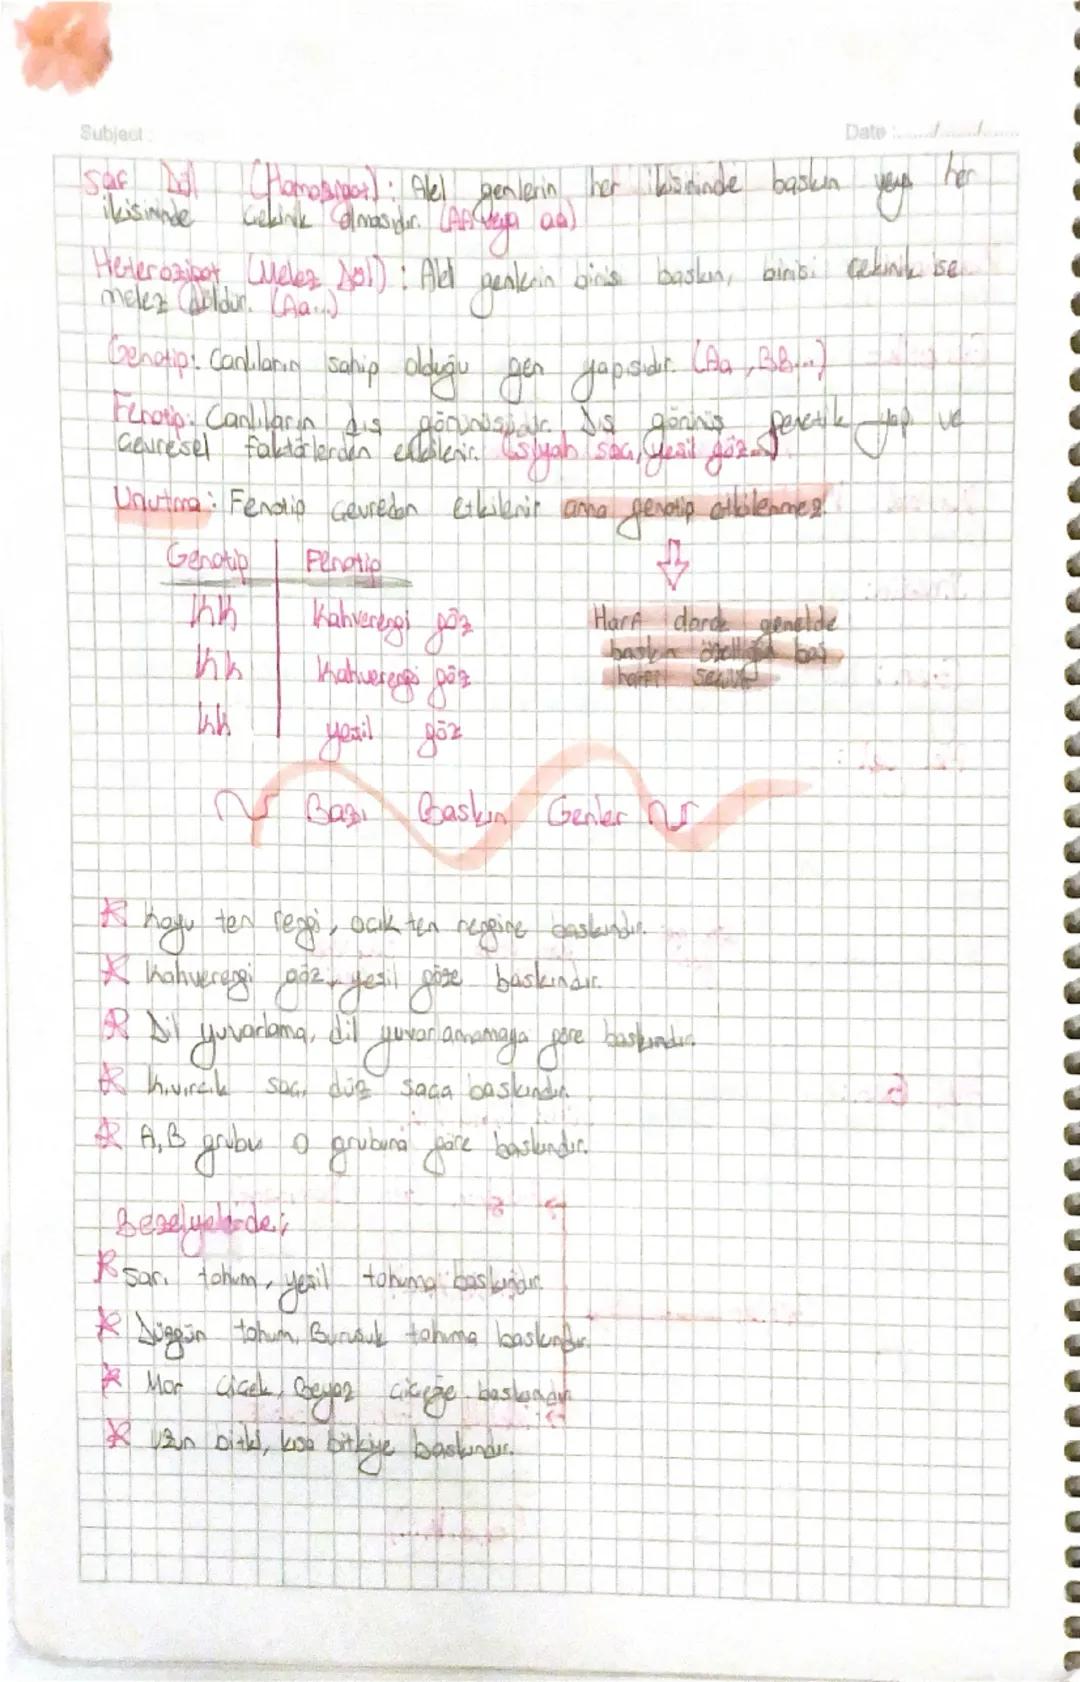 Subject :
Date :....../....../......
Saf Döl (Homozigot) : Alel genlerin her ikisininde baskın veya her
ikisininde çekinik olmasıdır. (AA veya aa)
Heterozigot (Melez Döl) : Alel genlerin birisi baskın, birisi çekinik ise
melez döldür. (Aa..)
Genotip: Canlıların sahip olduğu gen yapısıdır. (Aa, BB...)
Fenotip: Canlıların dış görünüşüdür. Dış görünüş genetik yapı ve
Çevresel faktörlerden etkilenir. (siyah saç, yeşil göz..)
Unutma : Fenotip çevreden etkilenir ama genotip etkilenmez!
Genotip Fenotip
KK Kahverengi göz
Harf darde genelde
Kk Kahverengi göz
baskın özelliğin baş
harfi seçilir
kk yeşil göz
Bazı Baskın Genler
koyu ten rengi, açık ten rengine baskındır.
Kahverengi göz, yeşil göze baskındır.
Dil yuvarlama, dil yuvarlamamaya göre baskındır.
Kıvırcık saç, düz saça baskındır.
A, B grubu 0 grubuna göre baskındır.
Bezelyelerde;
Sarı tohum, yeşil tohuma baskındır.
Düzgün tohum, Buruşuk tohuma baskındır.
Mor Çiçek, Beyaz çiçeğe baskındır
Uzun bitki, kısa bitkiye baskındır.